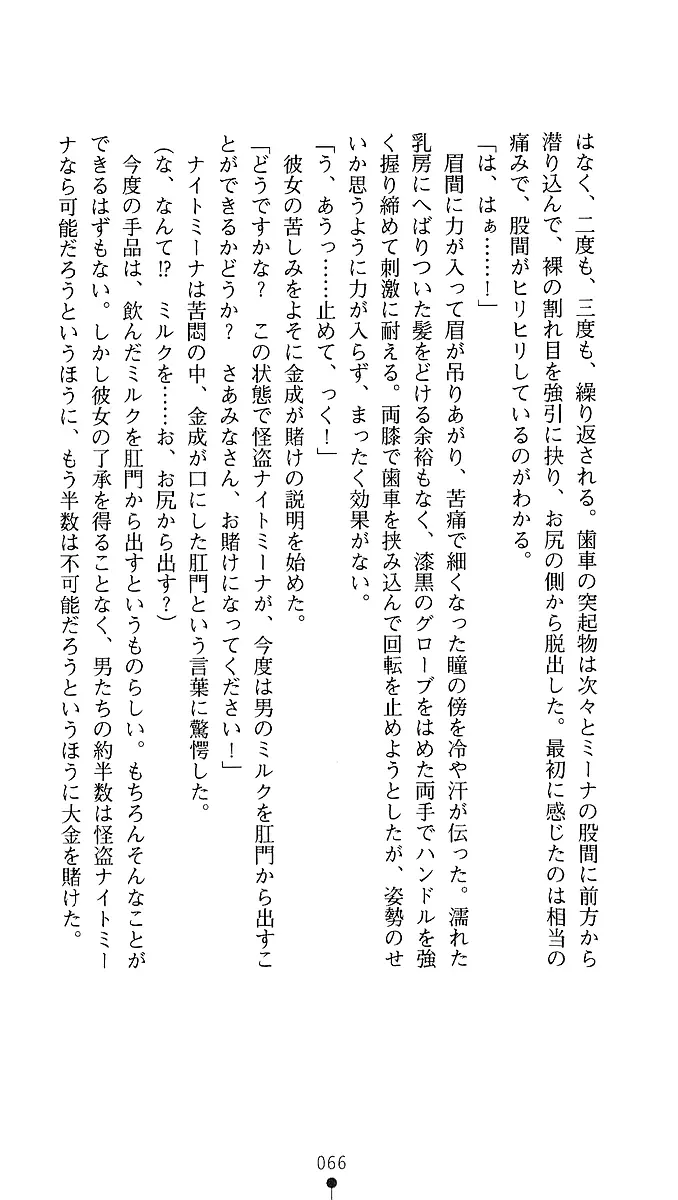 はなく、二度も、三度も、繰り返される。歯車の突起物は次々とミーナの股間に前方から
潜り込んで、裸の割れ目を強引に抉り、お尻の側から脱出した。最初に感じたのは相当の
痛みで、股間がヒリヒリしているのがわかる。
「は、はぁ……！」
眉間に力が入って眉が吊りあがり、苦痛で細くなった瞳の傍を冷や汗が伝った。濡れた
乳房にへばりついた髪をどける余裕もなく、漆黒のグローブをはめた両手でハンドルを強
く握り締めて刺激に耐える。両膝で歯車を挟み込んで回転を止めようとしたが、姿勢のせ
いか思うように力が入らず、まったく効果がない。
「う、あうっ……止めて、っく！」
彼女の苦しみをよそに金成が賭けの説明を始めた。
「どうですかな？　この状態で怪盗ナイトミーナが、今度は男のミルクを肛門から出すこ
とができるかどうか？　さあみなさん、お賭けになってください！」
ナイトミーナは苦悶の中、金成が口にした肛門という言葉に驚愕した。
（な、なんて!?　ミルクを……お、お尻から出す？）
今度の手品は、飲んだミルクを肛門から出すというものらしい。もちろんそんなことが
できるはずもない。しかし彼女の了承を得ることなく、男たちの約半数は怪盗ナイトミー
ナなら可能だろうというほうに、もう半数は不可能だろうというほうに大金を賭けた。
066